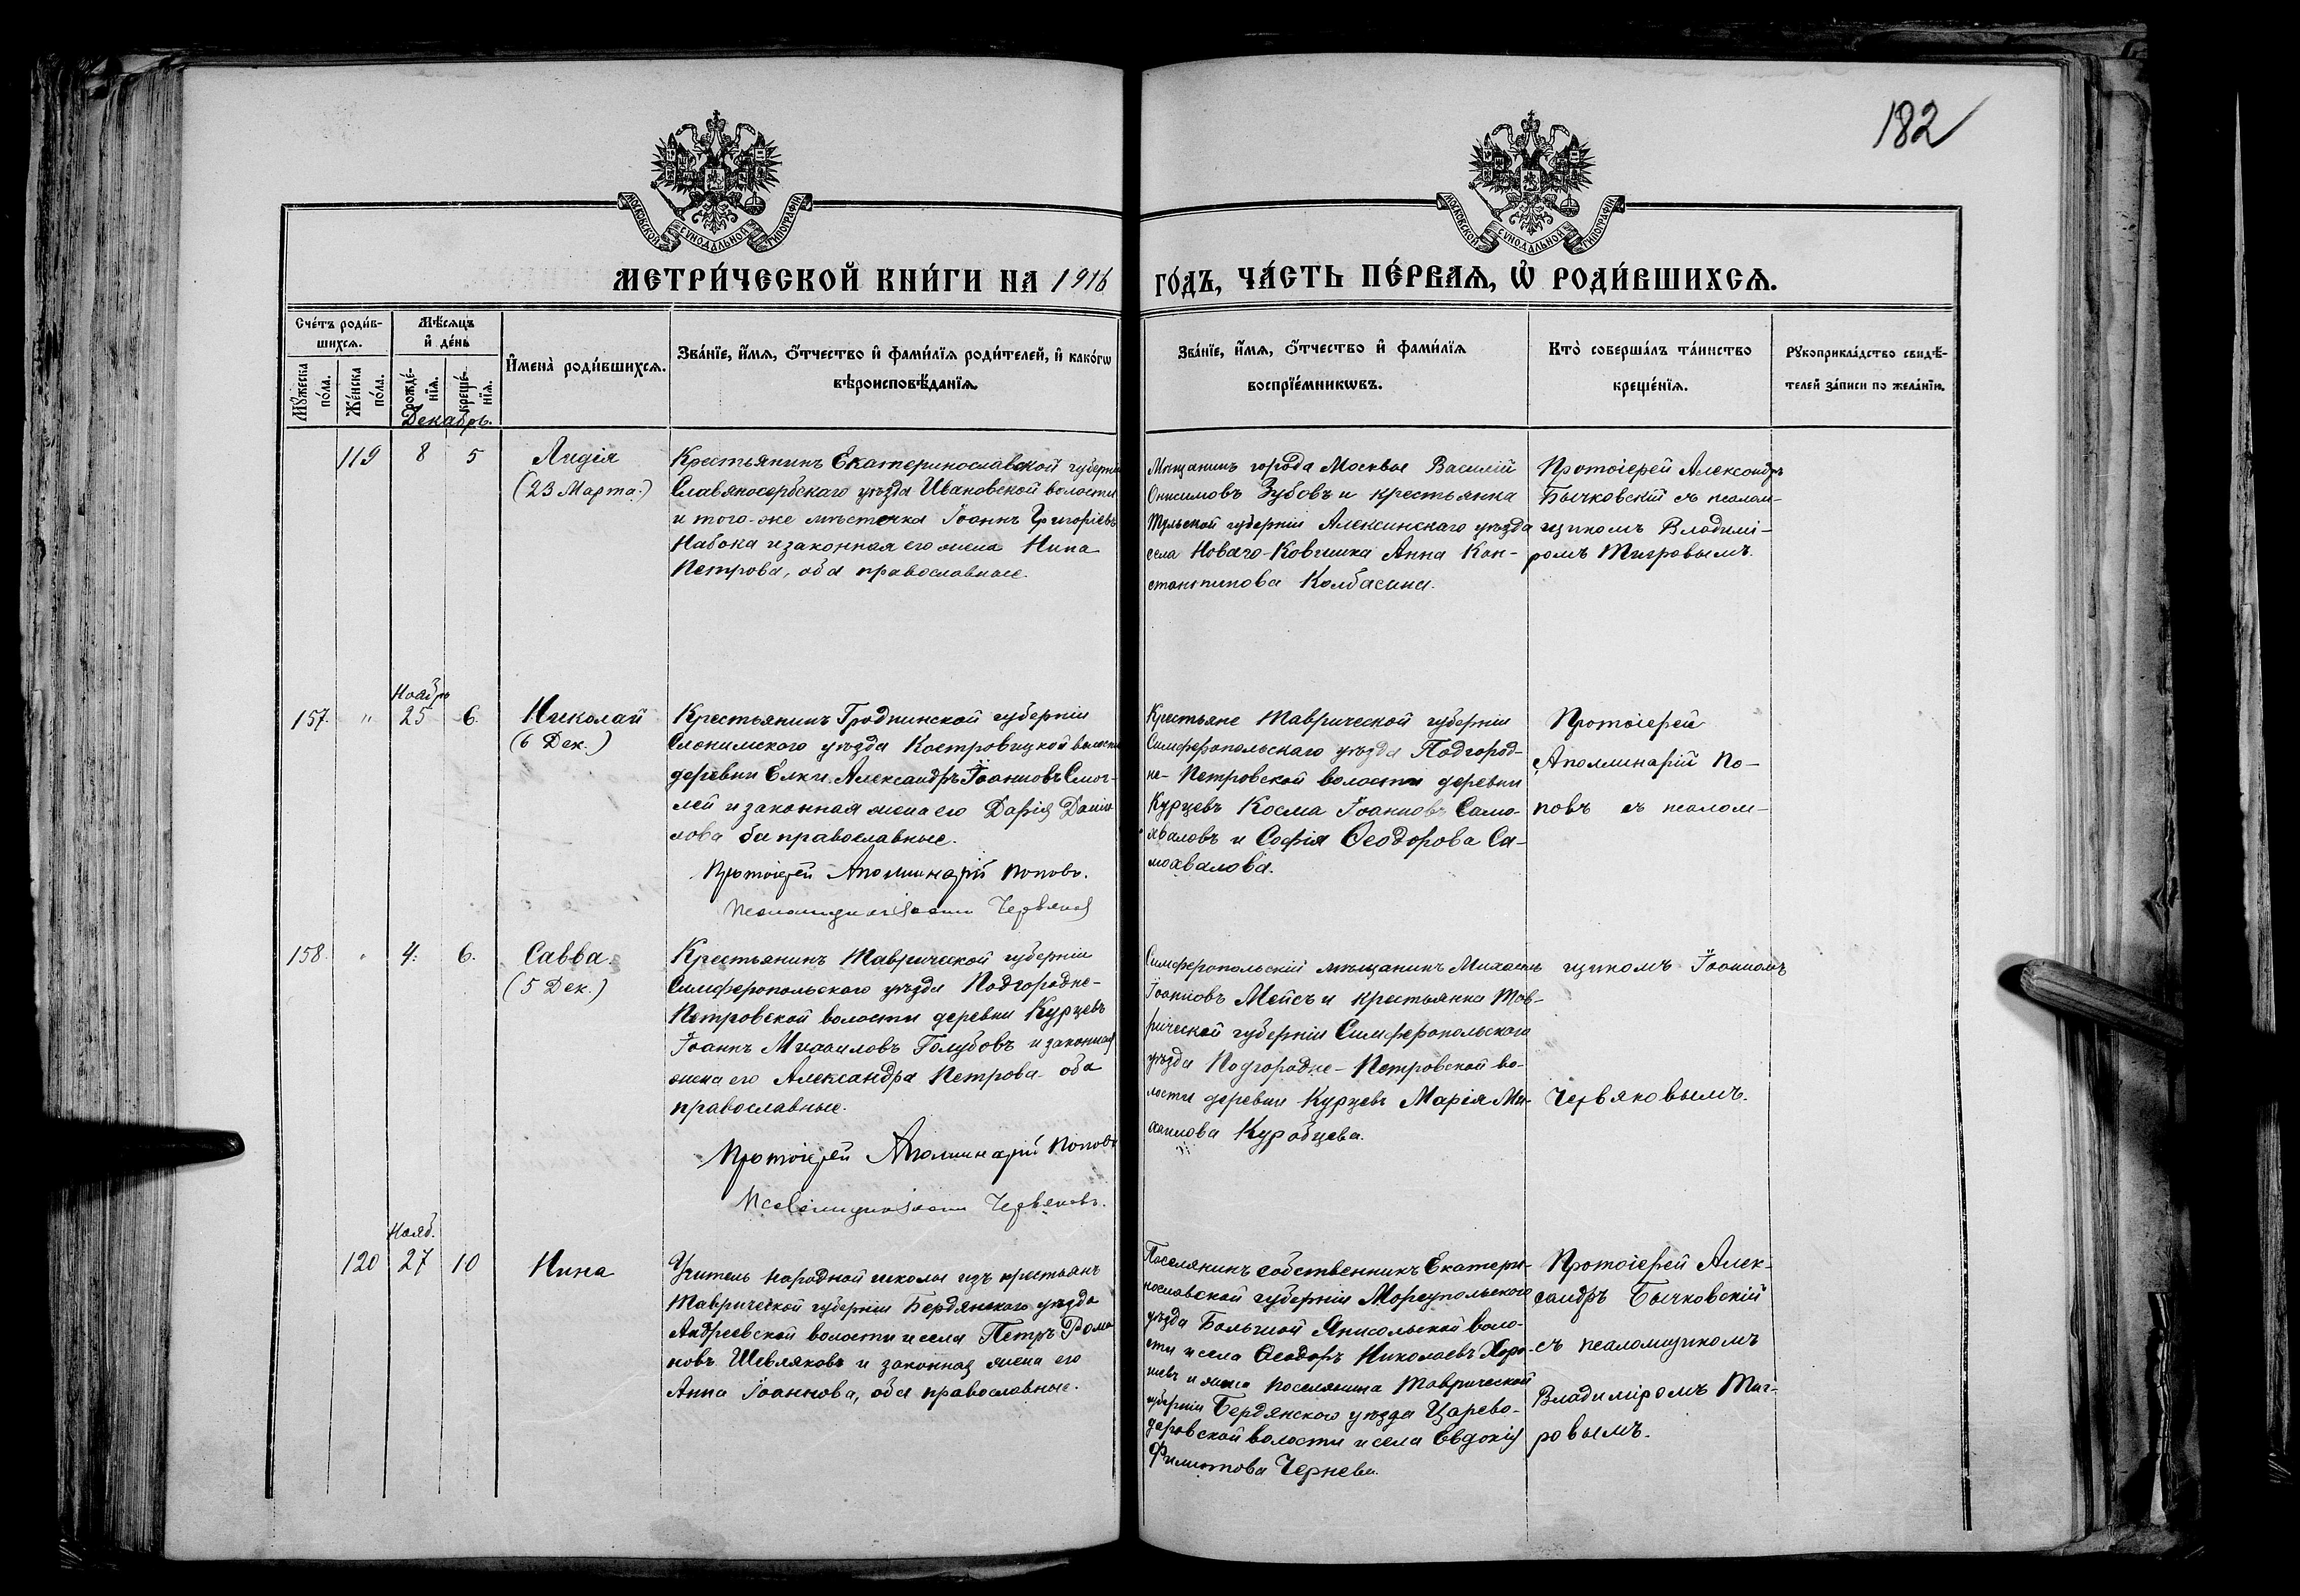 182
МОСКОВСКОЙ СѴНОДАЛЬНОЙ ТИПОГРАФІИ
МОСКОВСКОЙ СѴНОДАЛЬНОЙ ТИПОГРАФІИ
МЕТРИ́ЧЕСКОЙ КНИ́ГИ НА 1916 ГО́ДЪ, ЧА́СТЬ ПЕ́РВАѦ, Ѽ РОДИ́ВШИХСѦ.
Сче́тъ роди́в-
шихсѧ.
Мꙋ́жеска по́ла.
Же́нска по́ла.
Мѣ́сѧцъ
и҆ де́нь
рожде́-
нїѧ.
креще́-
нїѧ.
И҆мена̀ роди́вшихсѧ.
Зва́нїе, и҆́мѧ, ѻ҆́тчество и҆ фами́лїѧ роди́телей, и҆ како́гѡ
вѣроисповѣ́данїѧ.
Зва́нїе, и҆́мѧ, ѻ҆́тчество и҆ фами́лїѧ
воспрїе́мникѡвъ.
Кто̀ соверша́лъ та́инство
креще́нїѧ.
Рꙋкоприкла́дство свидѣ́-
телей за́писи по жела́нїю.
Декабрь.
119 8 5
Лидія
(23 Марта.)
Крестьянинъ Екатеринославской губерніи
Славяносербскаго уѣзда Ивановской волости
и того-же мѣстечка Іоаннъ Григоріевъ
Набока и законная его жена Нина
Петрова, оба православные.
Мѣщанинъ города Москвы Василій
Онисимовъ Зубовъ и крестьянка
Тульской губерніи Алексинскаго уѣзда
села Новаго-Ковшика Анна Кон-
стантинова Колбасина.
Протоіерей Александръ
Бычковскій съ псалом-
щикомъ Владимі-
ромъ Тигровымъ.
Ноябрь
157. " 25 6.
Николай
(6 Дек.)
Крестьянинъ Гродненской губерніи
Слонимскаго уѣзда Костровицкой волости
деревни Елки Александръ Іоанновъ Смог-
лей и законная жена его Дарія Дани-
лова оба православные.
Протоіерей Аполлинарій Поповъ.
Псаломщикъ Іоаннъ Червяковъ
Крестьяне Таврической губерніи
Симферопольскаго уѣзда Подгород-
не-Петровской волости деревни
Курцевъ Косма Іоанновъ Само-
хваловъ и Софія Ѳеодорова Са-
мохвалова.
Протоіерей
Аполлинарій По-
повъ съ псалом-
158. " 4. 6.
Савва.
(5 Дек.)
Крестьянинъ Таврической губерніи
Симферопольскаго уѣзда Подгородне-
Петровской волости деревни Курцевъ
Іоаннъ Михаиловъ Голубовъ и законная
жена его Александра Петрова оба
православные.
Протоіерей Аполлинарій Поповъ
Псаломщикъ Іоаннъ Червяковъ.
Симферопольскій мѣщанинъ Михаилъ
Іоанновъ Мейсъ и крестьянка Тав-
рической губерніи Симферопольскаго
уѣзда Подгородне-Петровской во-
лости деревни Курцевъ Марія Ми-
хаилова Куробцева.
щикомъ Іоанномъ
Червяковымъ.
Нояб.
120 27 10
Нина
Учитель народной школы изъ крестьянъ
Таврической губерніи Бердянскаго уѣзда
Андреевской волости и села Петръ Рома-
новъ Шевляковъ и законная жена его
Анна Іоаннова, оба православные.
Поселянинъ собственникъ Екатери-
нославской губерніи Моріупольскаго
уѣзда Большой Янисольской воло-
сти и села Ѳеодоръ Николаевъ
и жена поселянина Таврической
губерніи Бердянскаго уѣзда Царево-
даровской волости и села Евдокія
Филиппова Чернева.
Протоіерей Алек-
сандръ Бычковскій
съ псаломщикомъ
Владиміромъ Тиг-
ровымъ.